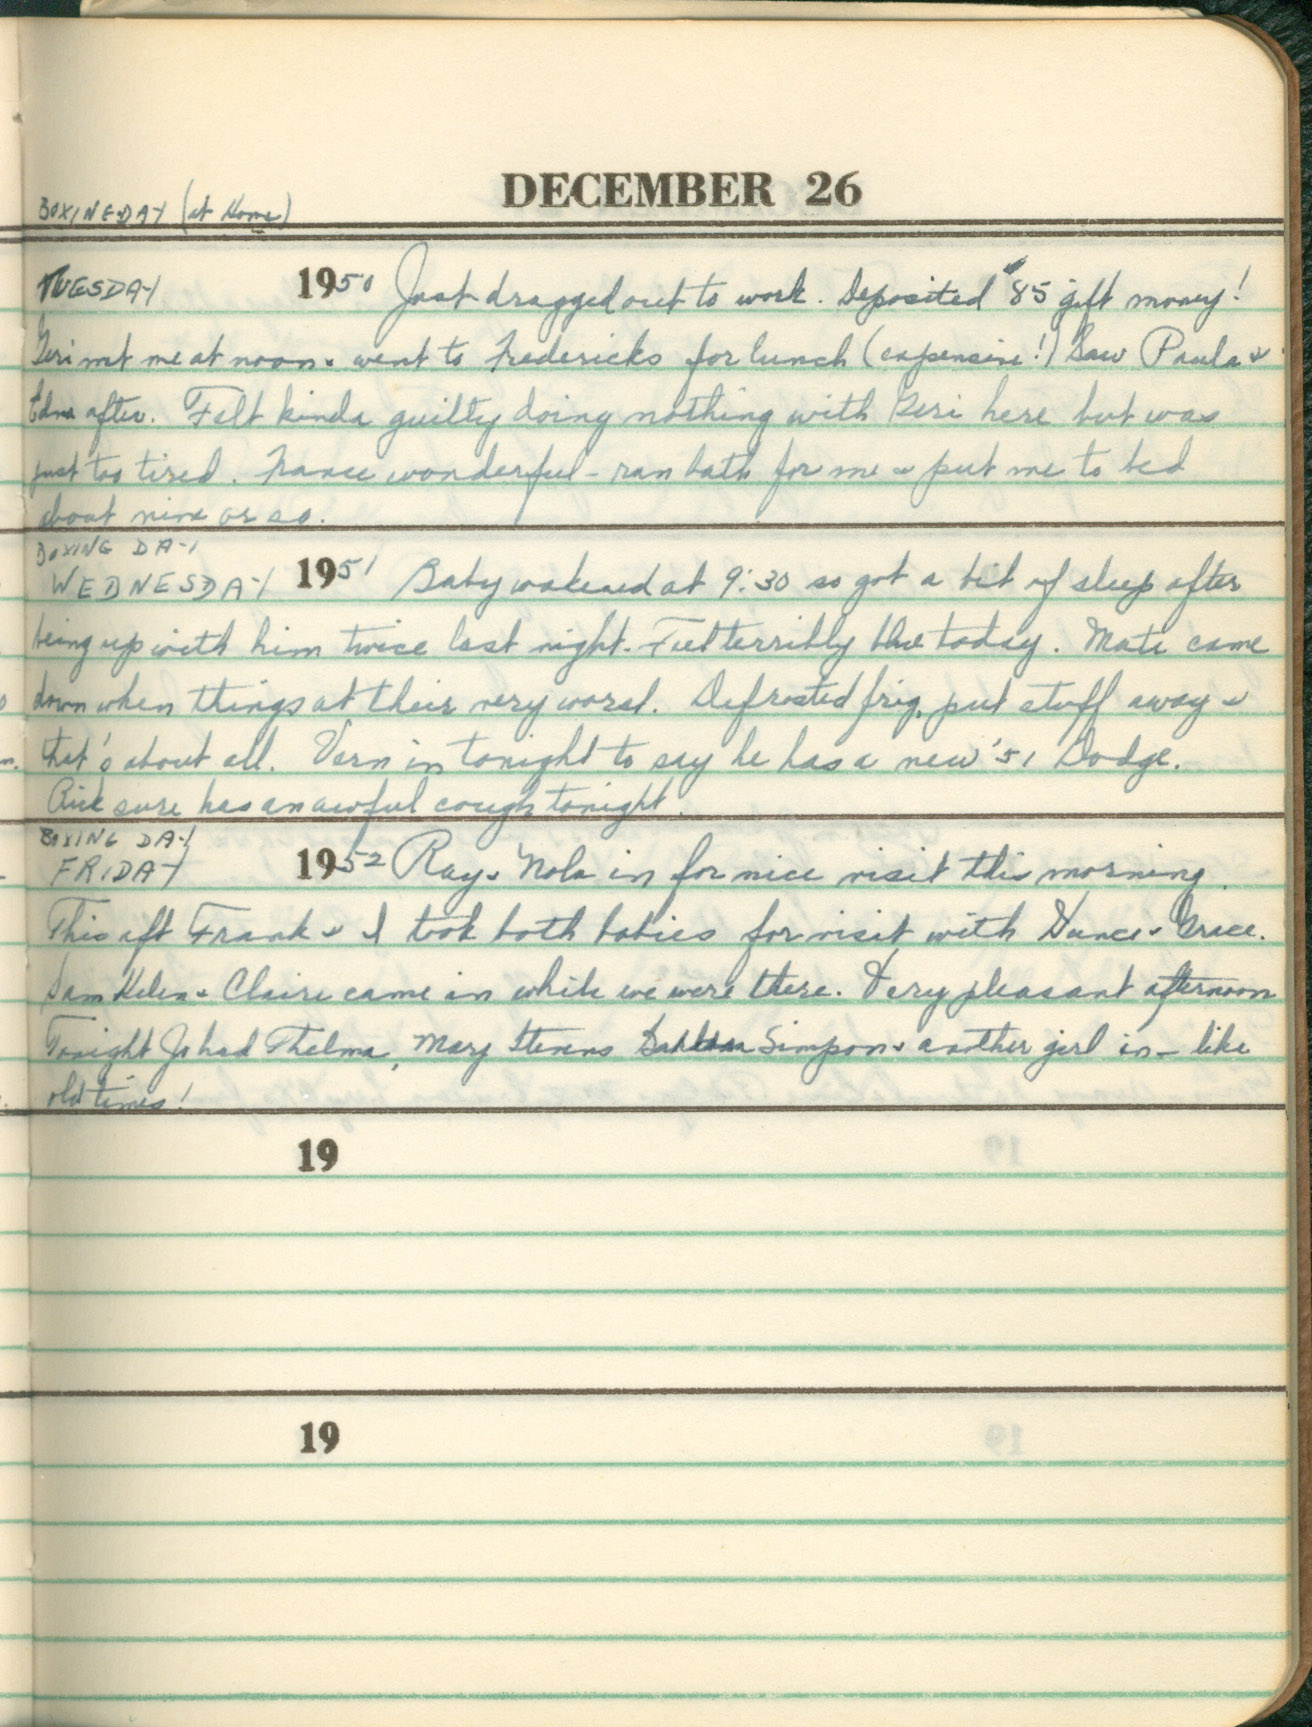 DECEMBER 26
BOXING DAY (at Home)
TUESDAY 1950 Just dragged out to work. Deposited $85 gift money!
Geri met me at noon & went to Fredericks for lunch (expensive!) Saw Paula &
Edna after. Felt kinda guilty doing nothing with Geri here but was
just too tired. France wonderful - ran bath for me & put me to bed
about nine or so.
BOXING DAY
WEDNESDAY 1951 Baby wakened at 9:30 so got a bit of sleep after
being up with him twice last night. Felt terribly blue today. Mate came
down when things at their very worst. Defrosted frig, put stuff away &
that's about all. Vern in tonight to say he has a new '51 Dodge.
Rick sure has an awful cough tonight.
BOXING DAY
FRIDAY 1952 Ray & Nola in for nice visit this morning.
This aft Frank & I took both babies for visit with & Grace.
Sam Helen & Claire came in while we were there. Very pleasant afternoon
Tonight Jo had Thelma, Mary Stevens Simpson & another girl in - like
old times!
19
19